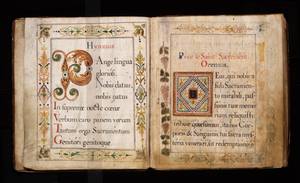 Hymnus
Pange lingua
gloriosi
Nobis datus,
nobis natus
In supremæ nocte cœnæ
Verbum caro panem verum
Tantum ergo Sacramentum
Genitori genitoque
Sacrement
Oremus
Deus, qui nobis
Sacramen-
to mirabili, pas-
sionis tuæ memo-
riam reliquisti
tribue quæsumus, ita nos Cor-
poris & Sanguinis tui sacra mys-
teria venerari, ut redemptionis